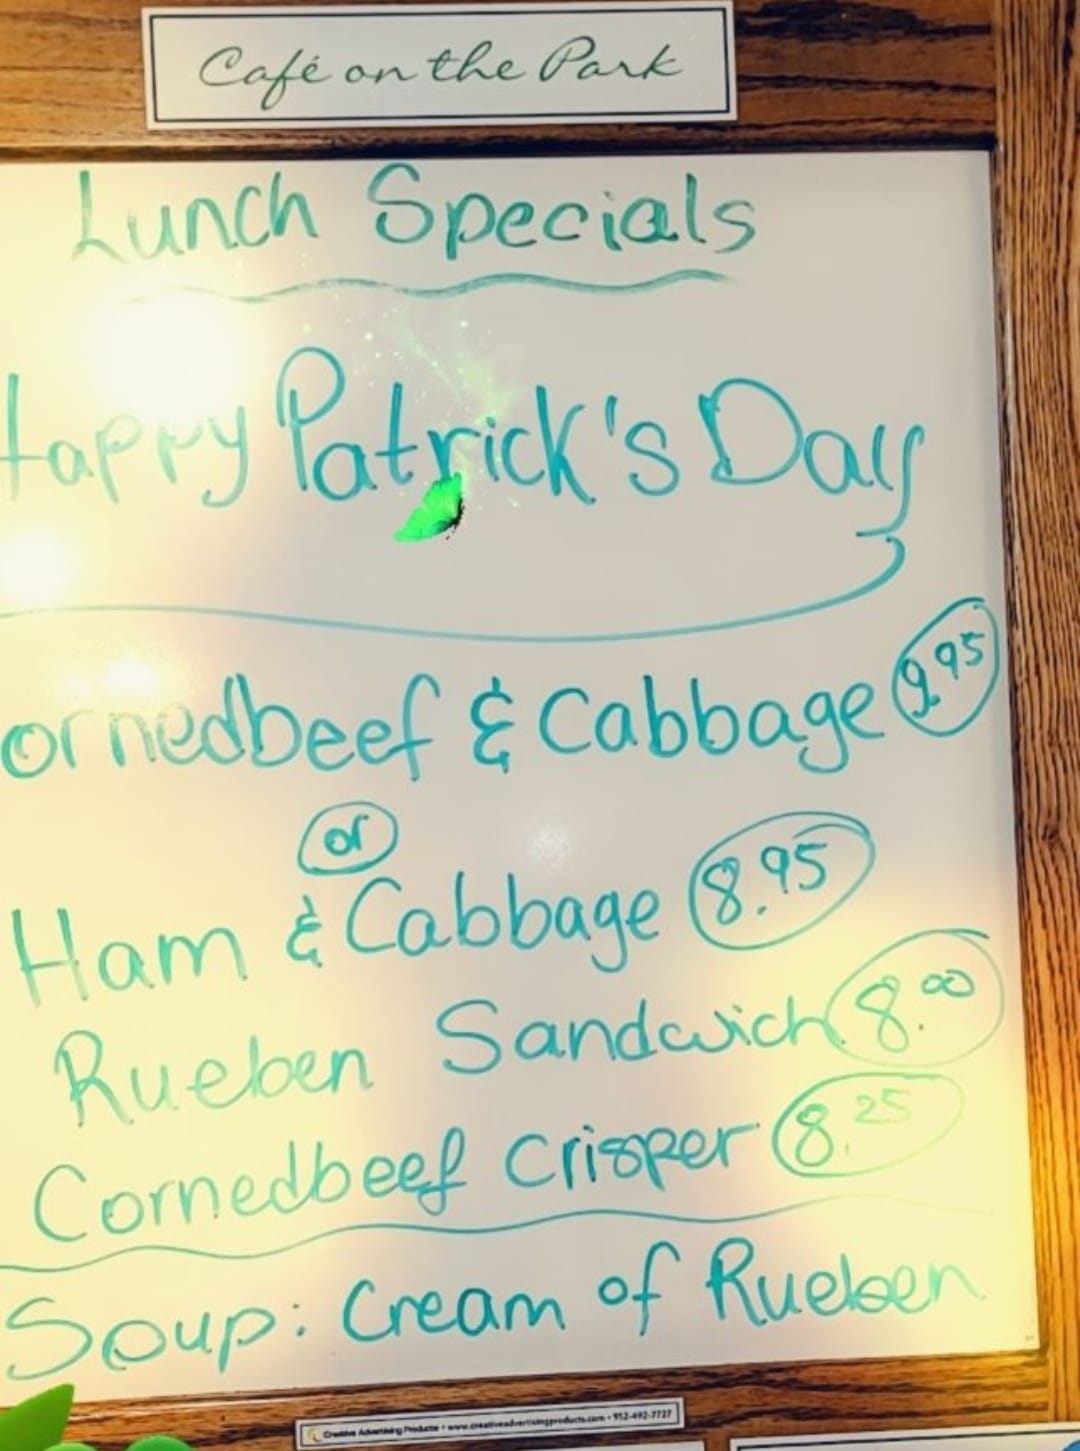 Café on the Park
Lunch Specials
Happy Patrick's Day
ornedbeef & Cabbage 9.95
or
Ham & Cabbage 8.95
Rueben Sandwich 8.00
Cornedbeef Crisper 8.25
Soup: Cream of Rueben
Creative Advertising Products • www.creativeadvertisingproducts.com • 952-492-7727